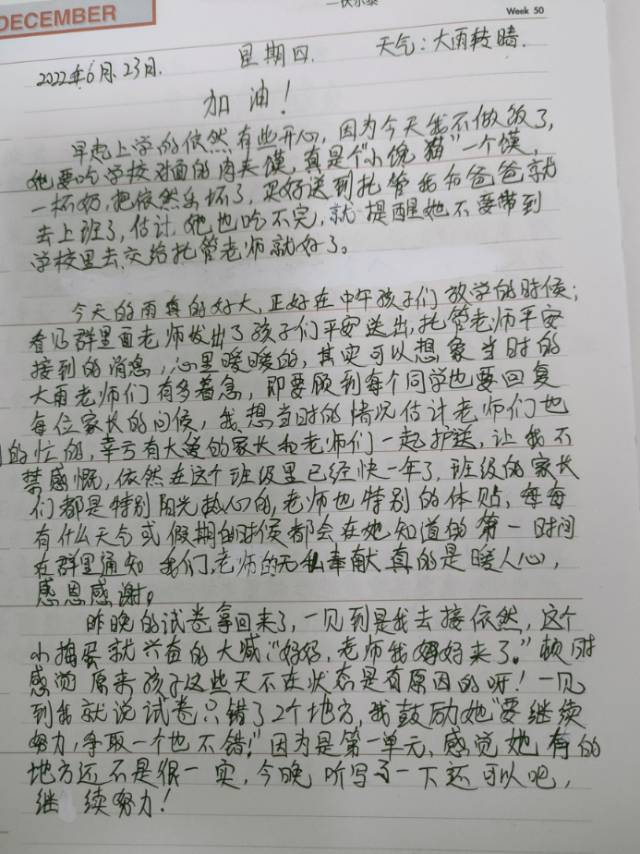 DECEMBER
Week 50
2022年6月23日. 星期四. 天气:大雨转晴.
加油!
早起上学的依然有些开心,因为今天我不做饭了,
她要吃学校对面的肉夹馍,真是个"小馋猫"一个馍,
一杯奶,把依然乐坏了,买好送到托管我和爸爸就
去上班了,估计她也吃不完,就提醒她不要带到
学校里去,交给托管老师就好了。
今天的雨真的好大,正好在中午孩子们放学的时候;
看见群里面老师发出了孩子们平安送出,托管老师平安
接到的消息,心里暖暖的,其实可以想象当时的
大雨老师们有多着急,即要顾到每个同学也要回复
每位家长的问候,我想当时的情况估计老师们也
的忙的,幸亏有大爱的家长和老师们一起护送,让我不
禁感慨,依然在这个班级里已经快一年了,班级的家长
们都是特别阳光热心的,老师也特别的体贴,每每
有什么天气或假期的时候都会在她知道的第一时间
在群里通知我们,老师的无私奉献真的是暖人心,
感恩感谢。
昨晚的试卷拿回来了,一见到是我去接依然,这个
小捣蛋就兴奋的大喊:"好好,老师我妈妈来了。"顿时
感觉原来孩子这些天不在状态是有原因的呀!一见
到我就说试卷只错了2个地方,我鼓励她"要继续
努力,争取一个也不错!"因为是第一单元,感觉她有的
地方还不是很一实,今晚听写了一下还可以吧,
继续努力!